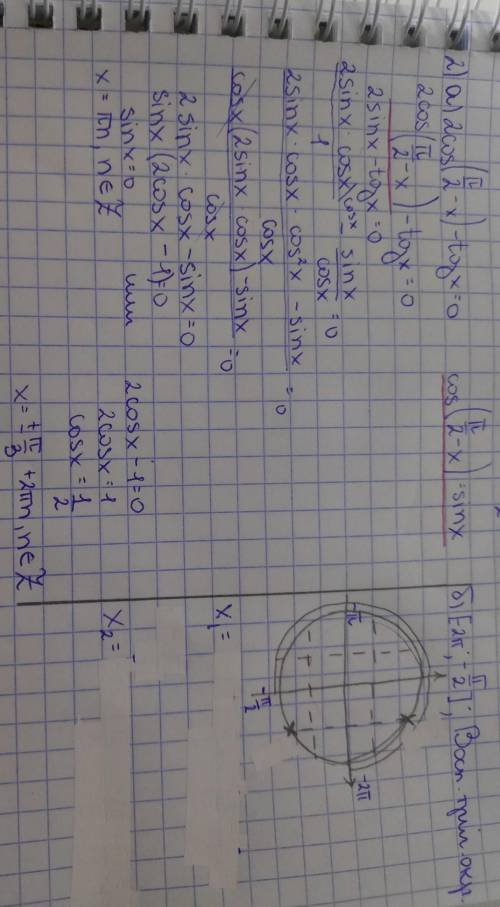 2) а) 2cos(π/2 - x) - tgx = 0
cos(π/2 - x) = sinx
2cos(π/2 - x) - tgx = 0
2sinx - tgx = 0
2sinx · cosx\cosx / 1 - sinx / cosx = 0
2sinx · cosx · cos²x - sinx / cosx = 0
cosx(2sinx cosx) - sinx / cosx = 0
2 sinx · cosx - sinx = 0
sinx (2cosx - 1) = 0
sinx = 0 или 2cosx - 1 = 0
x = πn, n∈Z
2cosx = 1
cosx = 1/2
x = ±π/3 + 2πn, n∈Z
б) [-2π; -π/2];
-π
-2π
-π/2
x₁ =
x₂ = -